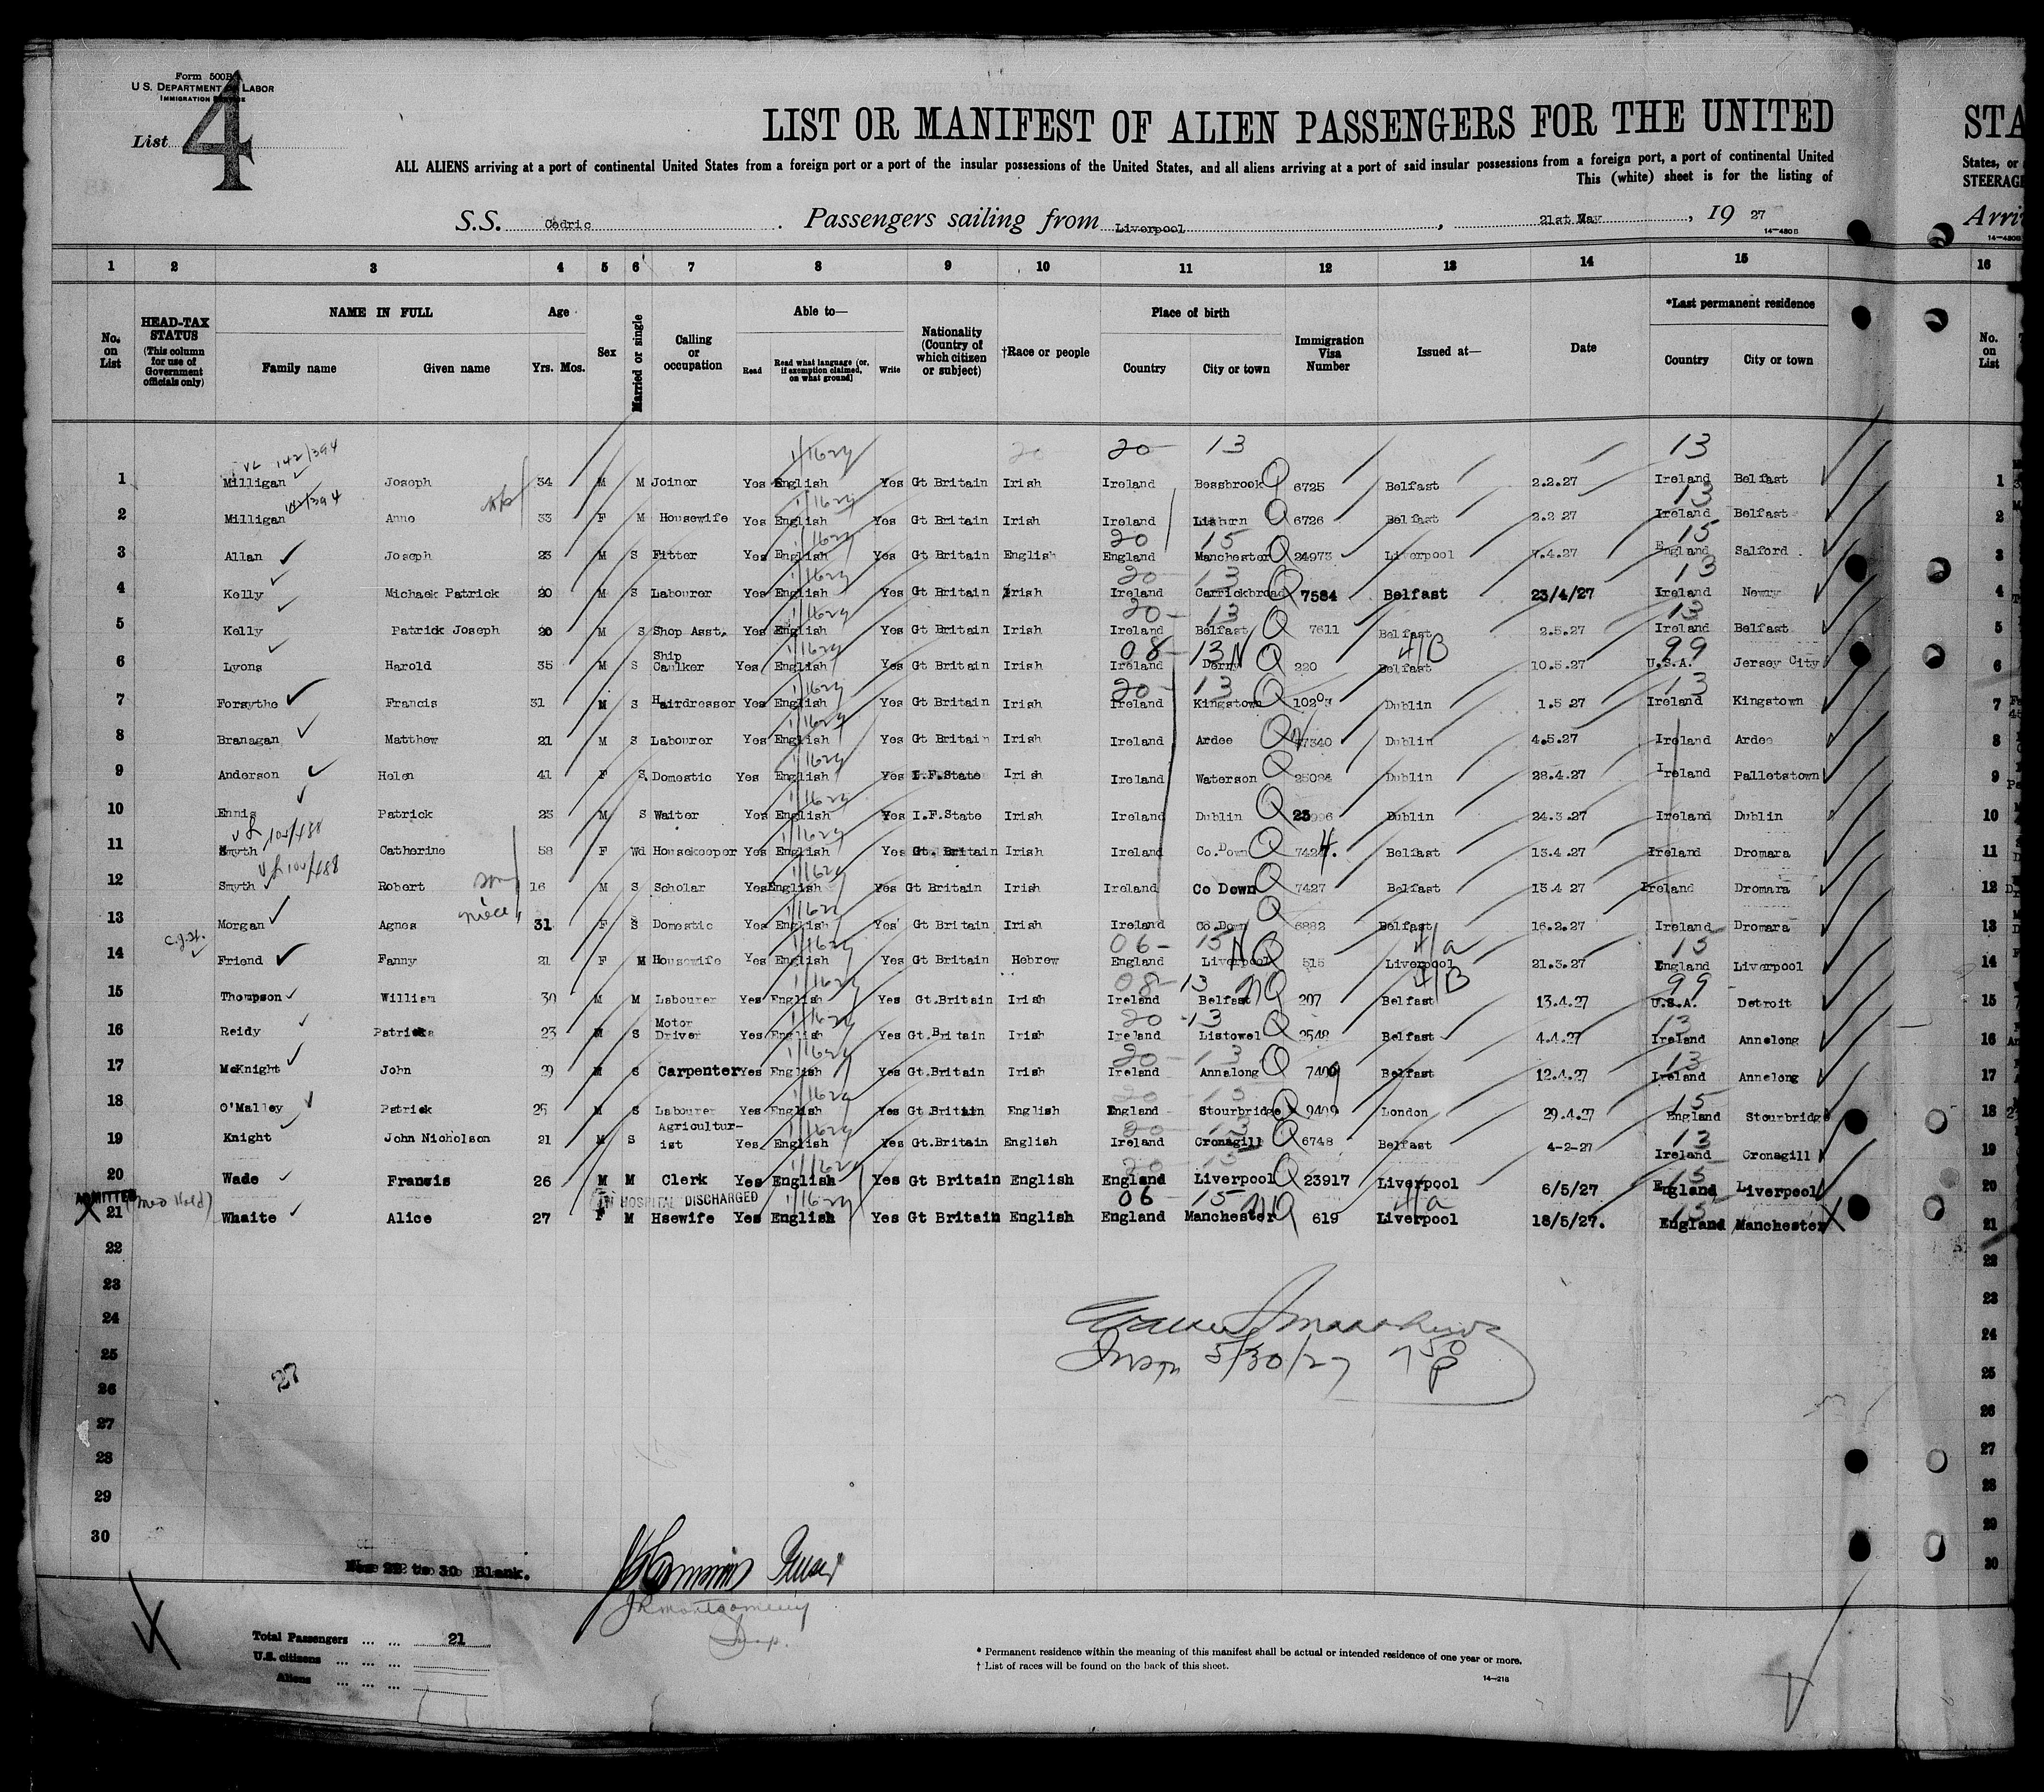 Form 500B
U.S. DEPARTMENT OF LABOR
IMMIGRATION SERVICE
List 4
LIST OR MANIFEST OF ALIEN PASSENGERS FOR THE UNITED STA
ALL ALIENS arriving at a port of continental United States from a foreign port or a port of the insular possessions of the United States, and all aliens arriving at a port of said insular possessions from a foreign port, a port of continental United States, or
This (white) sheet is for the listing of STEERAG
S.S. Cedric. Passengers sailing from Liverpool, 21st May, 19 27 Arri
14-480B 14-480B
1 2 3 4 5 6 7 8 9 10 11 12 13 14 15 16
No. on List HEAD-TAX STATUS (This column for use of Government officials only) NAME IN FULL Family name Given name Age Yrs. Mos. Sex Married or single Calling or occupation Able to— Read Read what language [or, if exemption claimed, on what ground] Write Nationality (Country of which citizen or subject) †Race or people Place of birth Country City or town Immigration Visa Number Issued at— Date *Last permanent residence Country City or town No. on List
142/394 1/1629 20 20 13 13
1 Milligan Joseph 34 M M Joiner Yes English Yes Gt Britain Irish Ireland Bessbrook Q 6725 Belfast 2.2.27 Ireland Belfast 1
142/394 1/1629 13
2 Milligan Anne 33 F M Housewife Yes English Yes Gt Britain Irish Ireland Lisburn Q 6726 Belfast 2.2 27 Ireland Belfast 2
1/1629 20 15 15
3 Allan Joseph 23 M S Fitter Yes English Yes Gt Britain English England Manchester Q 24973 Liverpool 7.4.27 England Salford 3
1/1629 20 13 13
4 Kelly Michaek Patrick 20 M S Labourer Yes English Yes Gt Britain Irish Ireland Carrickbroad Q 7584 Belfast 23/4/27 Ireland Newry 4
1/1629 20 - 13 13
5 Kelly Patrick Joseph 20 M S Shop Asst. Yes English Yes Gt Britain Irish Ireland Belfast Q 7611 Belfast 2.5.27 Ireland Belfast 5
1/1629 08 - 13 N 4/B 99
6 Lyons Harold 35 M S Ship Caulker Yes English Yes Gt Britain Irish Ireland Derry Q 220 Belfast 10.5.27 U.S.A. Jersey City 6
1/1629 20 - 13 13
7 Forsythe Francis 31 M S Hairdresser Yes English Yes Gt Britain Irish Ireland Kingstown Q 10203 Dublin 1.5 27 Ireland Kingstown 7
1/1629
8 Branagan Matthew 21 M S Labourer Yes English Yes Gt Britain Irish Ireland Ardee Q 27340 Dublin 4.5.27 Ireland Ardee 8
1/1629
9 Anderson Helen 41 F S. Domestic Yes English Yes I.F.State Irish Ireland Waterson Q 25024 Dublin 28.4.27 Ireland Palletstown 9
1/1629
10 Ennis Patrick 25 M S Waiter Yes English Yes I.F.State Irish Ireland Dublin Q Dublin 24.3.27 Ireland Dublin 10
104/488 1/1629
11 Smyth Catherine 58 F Wd Housekeeper Yes English Yes Gt. Britain Irish Ireland Co.Down Q 7424. Belfast 13.4 27 Ireland Dromara 11
104/488 1/1629
12 Smyth Robert son 16 M S Scholar Yes English Yes Gt Britain Irish Ireland Co Down Q 7427 Belfast 13.4 27 Ireland Dromara 12
1/1629
13 Morgan Agnes niece 31 F S Domestic Yes English Yes Gt Britain Irish Ireland Co.Down Q 6882 Belfast 16.2.27 Ireland Dromara 13
1/1629 06 - 15 N 4/a 15
14 Friend Fanny 21 F M Housewife Yes English Yes Gt Britain Hebrew England Liverpool Q 515 Liverpool 21.3.27 England Liverpool 14
1/1629 08 - 13 4/B 99
15 Thompson William 30 M M Labourer Yes English Yes Gt.Britain Irish Ireland Belfast NQ 207 Belfast 13.4.27 U.S.A. Detroit 15
1/1629 20 - 13 13
16 Reidy Patrick 23 M S Motor Driver Yes English Yes Gt.Britain Irish Ireland Listowel Q 2548 Belfast 4.4.27 Ireland Annalong 16
1/1629 20 - 13 13
17 McKnight John 29 M S Carpenter Yes English Yes Gt.Britain Irish Ireland Annalong Q 7409 Belfast 12.4.27 Ireland Annalong 17
1/1629 20 - 15 15
18 O'Malley Patrick 25 M S Labourer Yes English Yes Gt.Britain English England Stourbridge Q 9409 London 29.4.27 England Stourbridge 18
1/1629 20 - 13 13
19 Knight John Nicholson 21 M S Agricultur-ist Yes English Yes Gt.Britain English Ireland Cronagill Q 6748 Belfast 4-2-27 Ireland Cronagill 19
1/1629 20 - 15 15
20 Wade Francis 26 M M Clerk Yes English Yes Gt Britain English England Liverpool Q 23917 Liverpool 6/5/27 England Liverpool 20
ADMITTED (Med Hold) IN HOSPITAL DISCHARGED 1/1629 06 - 15 4/a 15
21 Whaite Alice 27 F M Hsewife Yes English Yes Gt Britain English England Manchester NQ 619 Liverpool 18/5/27. England Manchester 21
22 22
23 23
24 24
25 Insp 5/30/27 7 50 P 25
26 27 26
27 27
28 28
29 29
30 30
Nos 22 to 30 Blank.
JR Montgomery
Total Passengers ... ... 21
U.S. citizens ... ... ...
Aliens ... ... ...
* Permanent residence within the meaning of this manifest shall be actual or intended residence of one year or more.
† List of races will be found on the back of this sheet.
14-218